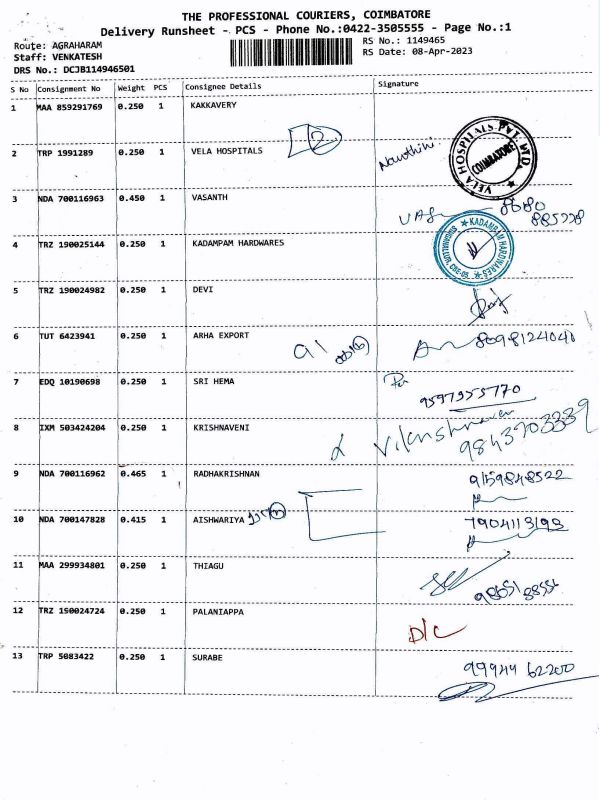 THE PROFESSIONAL COURIERS, COIMBATORE
Delivery Runsheet - PCS - Phone No.:0422-3505555 - Page No.:1
Route: AGRAHARAM
RS No.: 1149465
Staff: VENKATESH
RS Date: 08-Apr-2023
DRS No.: DCJB114946501
S No Consignment No Weight PCS Consignee Details Signature
1 MAA 859291769 0.250 1 KAKKAVERY
2
2 TRP 1991289 0.250 1 VELA HOSPITALS
VELA HOSPITALS PVT. LTD. COIMBATORE
3 NDA 700116963 0.450 1 VASANTH
VAS 8680
885778
4 TRZ 190025144 0.250 1 KADAMPAM HARDWARES
KADAMBAM HARDWARES
5 TRZ 190024982 0.250 1 DEVI
6 TUT 6423941 0.250 1 ARHA EXPORT
91 8098124040
7 EDQ 10190698 0.250 1 SRI HEMA
9597955770
8 IXM 503424204 0.250 1 KRISHNAVENI
9843703339
9 NDA 700116962 0.465 1 RADHAKRISHNAN
9159848522
10 NDA 700147828 0.415 1 AISHWARIYA
7904113193
11 MAA 299934801 0.250 1 THIAGU
12 TRZ 190024724 0.250 1 PALANIAPPA
D/C
13 TRP 5083422 0.250 1 SURABE
99944 62200